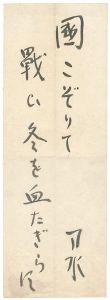 國こぞりて
戰ひ冬を血たぎらす